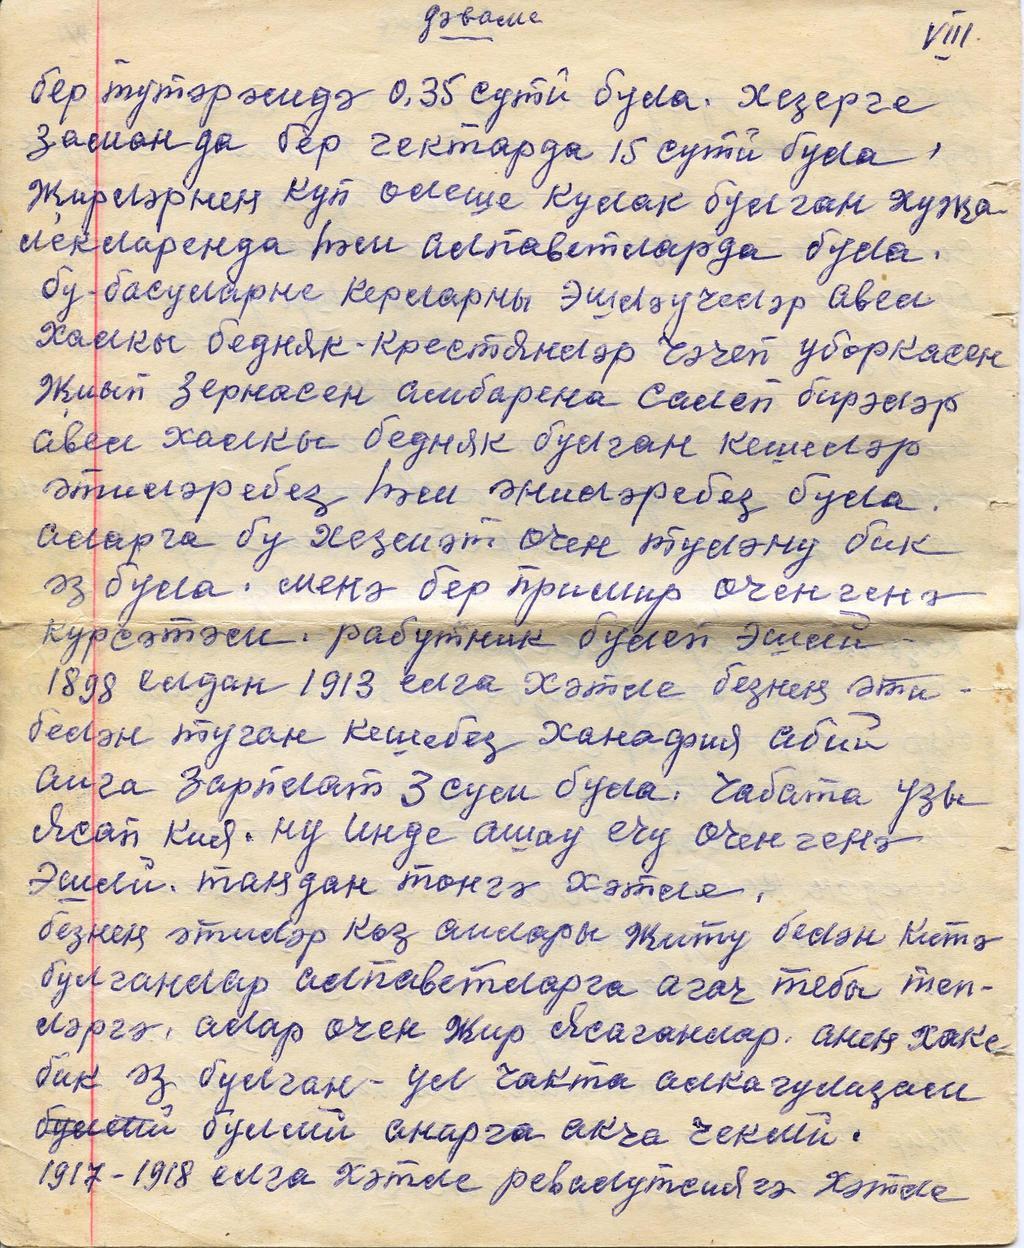 дәваме
VIII
бер түтәрәмдә 0,35 сутй була. хезерге
Заманда бер гектарда 15 сутй була,
Җирләрнең күп өлеше кулак булган хуҗа-
лекларенда һәм алпаветларда була.
бу-басуларне керларны эшләүчеләр авел
Халкы бедняк-крестяндәр чәчеп уборкасен
Җыып зернасен амбарена салеп бирәләр
авел халкы бедняк булган кешеләр
әтиләребез һәм әниләребез була.
аларга бу хезмәт өчен түләнү бик
әз була. менә бер примир өченгенә
күрсәтәм. работник булеп эшлй
1898 елдан 1913 елга хәтле безнең әти-
белән туган кешебез Ханафия абий
айга зарплат 3 сум була. чабата узы
ясап кия. ну инде ашау ечу өченгенә
эшлй. таңдан төнгә хәтле,
безнең әтиләр көз айлары җитү белән китә
булганлар алпаветларга агач төбы төп-
ләргә. алар өчен җир ясаганлар. анең хаке
бик әз булган - ул чакта алкагулизам
булмй булмй анарга акча чекмй.
1917-1918 елга хәтле револутсиягә хәтле